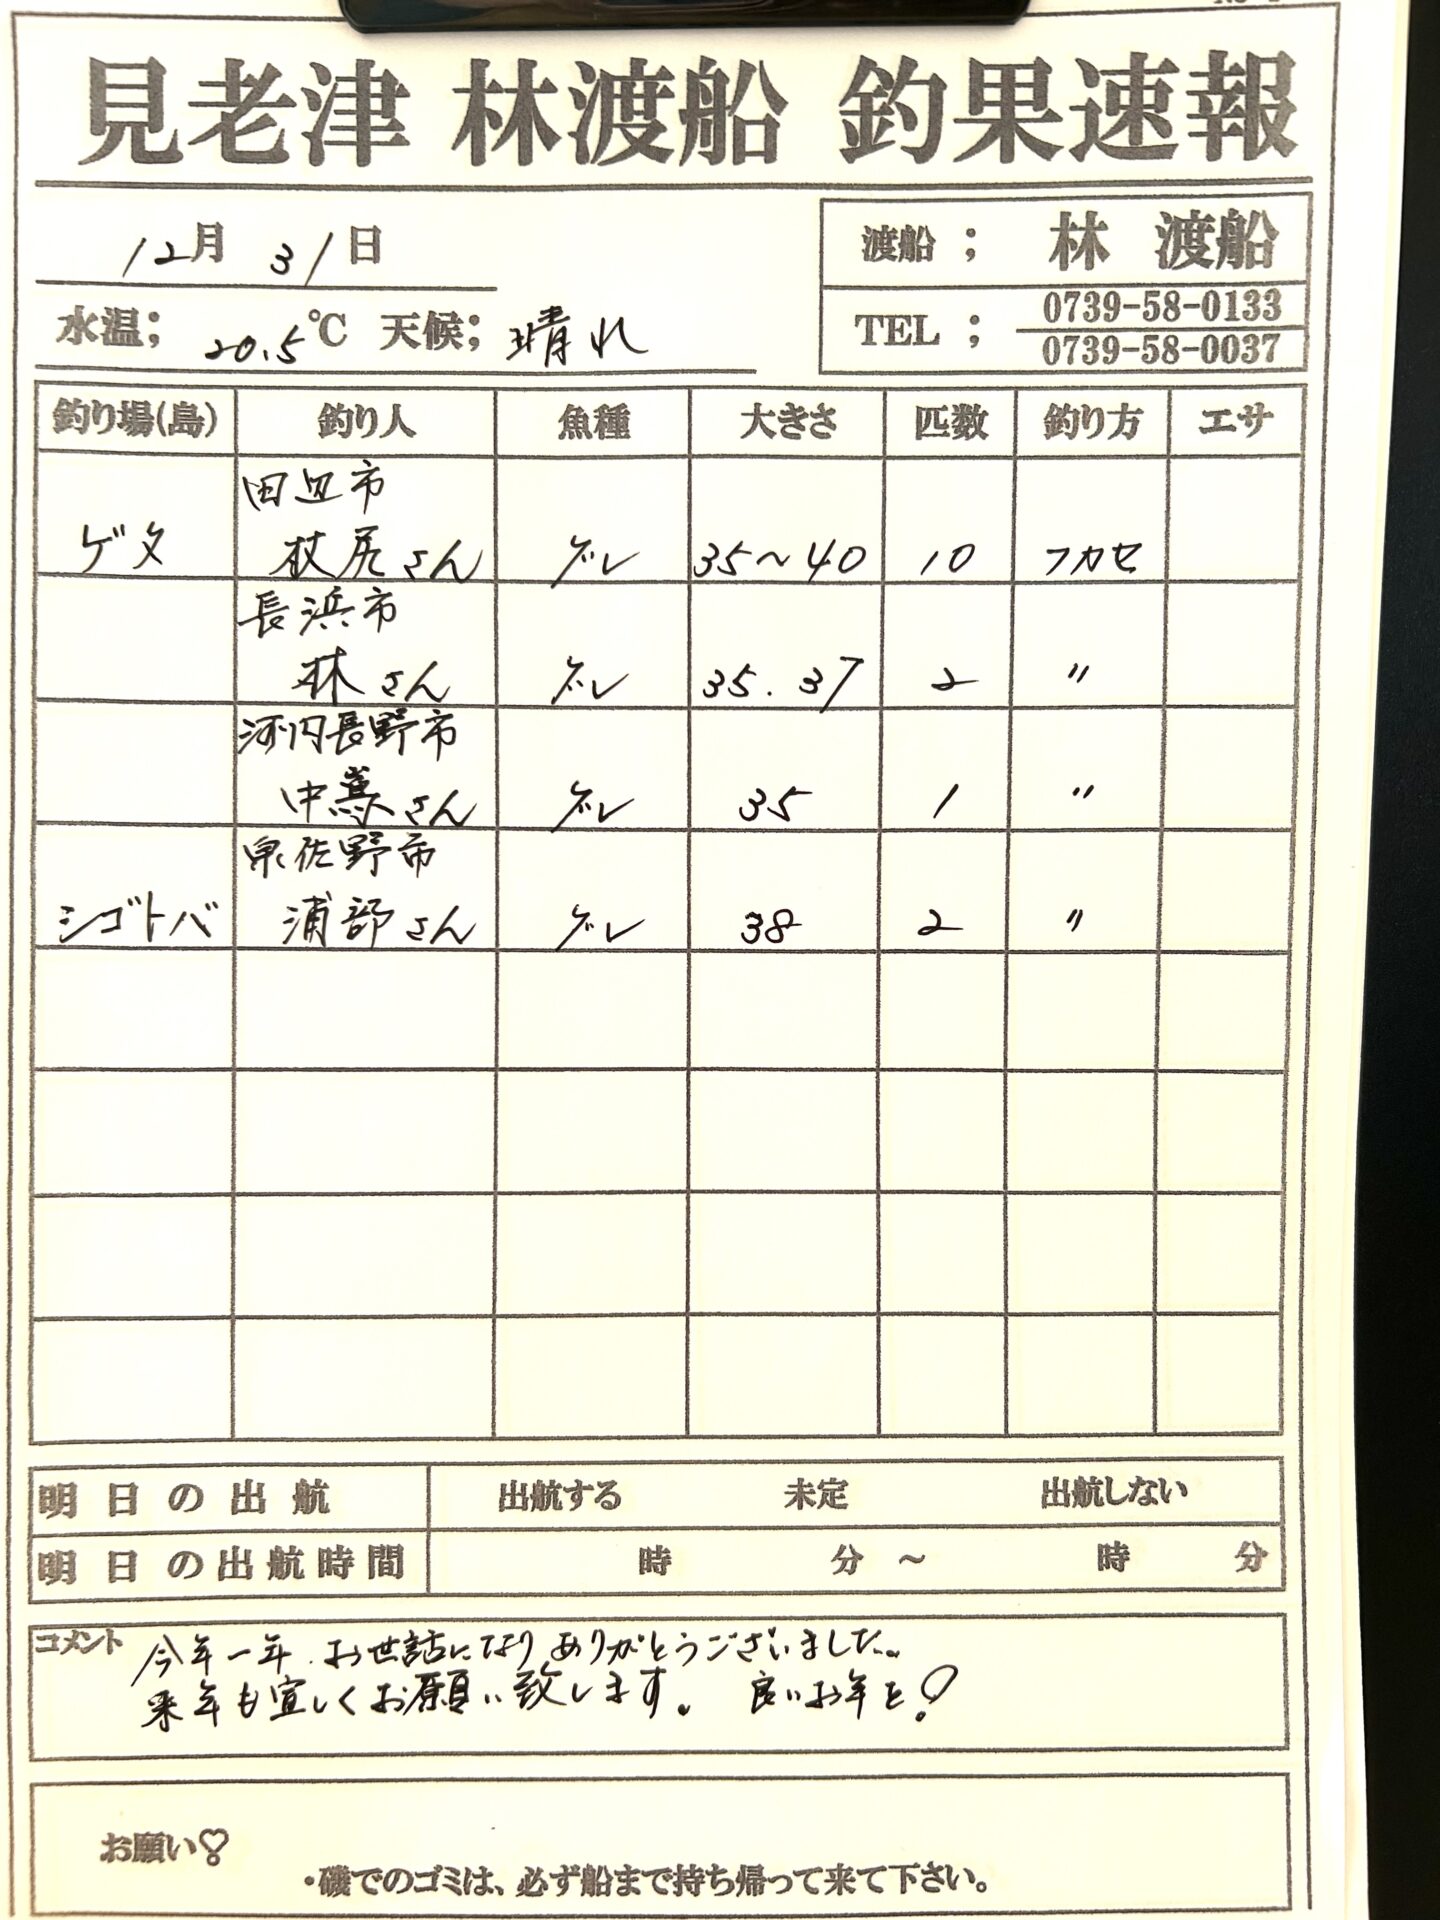 見老津 林渡船 釣果速報
12月 31日
渡船 ; 林 渡船
水温; 20.5℃ 天候; 晴れ
TEL ; 0739-58-0133
0739-58-0037
釣り場(島) 釣り人 魚種 大きさ 匹数 釣り方 エサ
田辺市
ゲタ 杖尻さん グレ 35～40 10 フカセ
長浜市
林さん グレ 35.37 2 〃
河内長野市
中さん グレ 35 1 〃
泉佐野市
シゴトバ 浦部さん グレ 38 2 〃
明日の出航 出航する 未定 出航しない
明日の出航時間 時 分 ～ 時 分
コメント 今年一年.お世話になりありがとうございました。
来年も宜しくお願い致します。 良いお年を!
お願い♡
・磯でのゴミは、必ず船まで持ち帰って来て下さい。